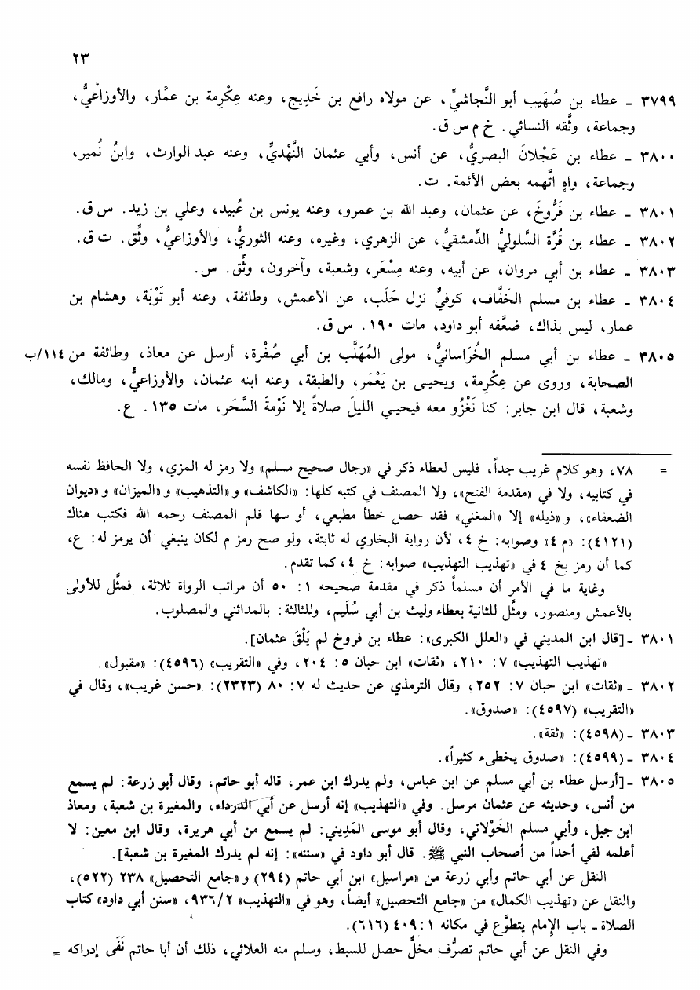 ٢٣
٣٧٩٩ ـ عطاء بن صُهَيب أبو النَّجاشيِّ، عن مولاه رافع بن خَدِيج، وعنه عِكْرِمة بن عمَّار، والأوزاعيُّ،
وجماعة، وثَّقه النسائي. خ م س ق.
٣٨٠٠ ـ عطاء بن عَجْلانَ البصريُّ، عن أنس، وأبي عثمان النَّهْديِّ، وعنه عبد الوارث، وابنُ نُمير،
وجماعة، واهٍ اتَّهمه بعض الأئمة. ت.
٣٨٠١ ـ عطاء بن فَرُّوخَ، عن عثمان، وعبد الله بن عمرو، وعنه يونس بن عُبيد، وعلي بن زيد. س ق.
٣٨٠٢ ـ عطاء بن قُرَّة السَّلوليُّ الدِّمشقيُّ، عن الزهري، وغيره، وعنه الثوريُّ، والأوزاعيُّ، وثِّق. ت ق.
٣٨٠٣ ـ عطاء بن أبي مروان، عن أبيه، وعنه مِسْعَر، وشعبة، وآخرون، وثِّق. س.
٣٨٠٤ ـ عطاء بن مسلم الخَفَّاف، كوفيٌّ نزل حَلَب، عن الأعمش، وطائفة، وعنه أبو تَوْبَة، وهشام بن
عمار، ليس بذاك، ضعَّفه أبو داود، مات ١٩٠. س ق.
٣٨٠٥ ـ عطاء بن أبي مسلم الخُرَاسانيُّ، مولى المُهَلَّب بن أبي صُفْرة، أرسل عن معاذ، وطائفة من ١١٤/ب
الصحابة، وروى عن عِكْرِمة، ويحيى بن يَعْمَر، والطبقة، وعنه ابنه عثمان، والأوزاعيُّ، ومالك،
وشعبة، قال ابن جابر: كنا نَغْزُو معه فيحيي الليل صلاةً إلا نَوْمةَ السَّحَر، مات ١٣٥. ع.
= ٧٨، وهو كلام غريب جداً، فليس لعطاء ذكر في «رجال صحيح مسلم» ولا رمز له المزي، ولا الحافظ نفسه
في كتابيه، ولا في «مقدمة الفتح»، ولا المصنف في كتبه كلها: «الكاشف» و«التذهيب» و«الميزان» و«ديوان
الضعفاء»، و«ذيله» إلا «المغني» فقد حصل خطأ مطبعي، أو سها قلم المصنف رحمه الله فكتب هناك
(٤١٢١): «م ٤» وصوابه: خ ٤، لأن رواية البخاري له ثابتة، ولو صح رمز م لكان ينبغي أن يرمز له: ع،
كما أن رمز بخ ٤ في «تهذيب التهذيب» صوابه: خ ٤، كما تقدم.
وغاية ما في الأمر أن مسلماً ذكر في مقدمة صحيحه ١: ٥٠ أن مراتب الرواة ثلاثة، فمثَّل للأولى
بالأعمش ومنصور، ومثَّل للثانية بعطاء وليث بن أبي سُليم، وللثالثة: بالمدائني والمصلوب.
٣٨٠١ ـ [قال ابن المديني في «العلل الكبرى»: عطاء بن فروخ لم يَلْقَ عثمان].
«تهذيب التهذيب» ٧: ٢١٠، «ثقات» ابن حبان ٥: ٢٠٤، وفي «التقريب» (٤٥٩٦): «مقبول».
٣٨٠٢ ـ «ثقات» ابن حبان ٧: ٢٥٢، وقال الترمذي عن حديث له ٧: ٨٠ (٢٣٢٣): «حسن غريب»، وقال في
«التقريب» (٤٥٩٧): «صدوق».
٣٨٠٣ ـ (٤٥٩٨): «ثقة».
٣٨٠٤ ـ (٤٥٩٩): «صدوق يخطىء كثيراً».
٣٨٠٥ ـ [أرسل عطاء بن أبي مسلم عن ابن عباس، ولم يدرك ابن عمر، قاله أبو حاتم، وقال أبو زرعة: لم يسمع
من أنس، وحديثه عن عثمان مرسل. وفي «التهذيب» إنه أرسل عن أبي الدرداء، والمغيرة بن شعبة، ومعاذ
ابن جبل، وأبي مسلم الخَوْلاني، وقال أبو موسى المَدِيني: لم يسمع من أبي هريرة، وقال ابن معين: لا
أعلمه لقي أحداً من أصحاب النبي ﷺ. قال أبو داود في «سننه»: إنه لم يدرك المغيرة بن شعبة].
النقل عن أبي حاتم وأبي زرعة من «مراسيل» ابن أبي حاتم (٢٩٤) و«جامع التحصيل» ٢٣٨ (٥٢٢)،
والنقل عن «تهذيب الكمال» من «جامع التحصيل» أيضاً، وهو في «التهذيب» ٩٣٦/٢، «سنن أبي داود» كتاب
الصلاة ـ باب الإمام يتطوَّع في مكانه ١: ٤٠٩ (٦١٦).
وفي النقل عن أبي حاتم تصرُّف مخلٌّ حصل للسبط، وسلم منه العلائي، ذلك أن أبا حاتم نَفَى إدراكه =